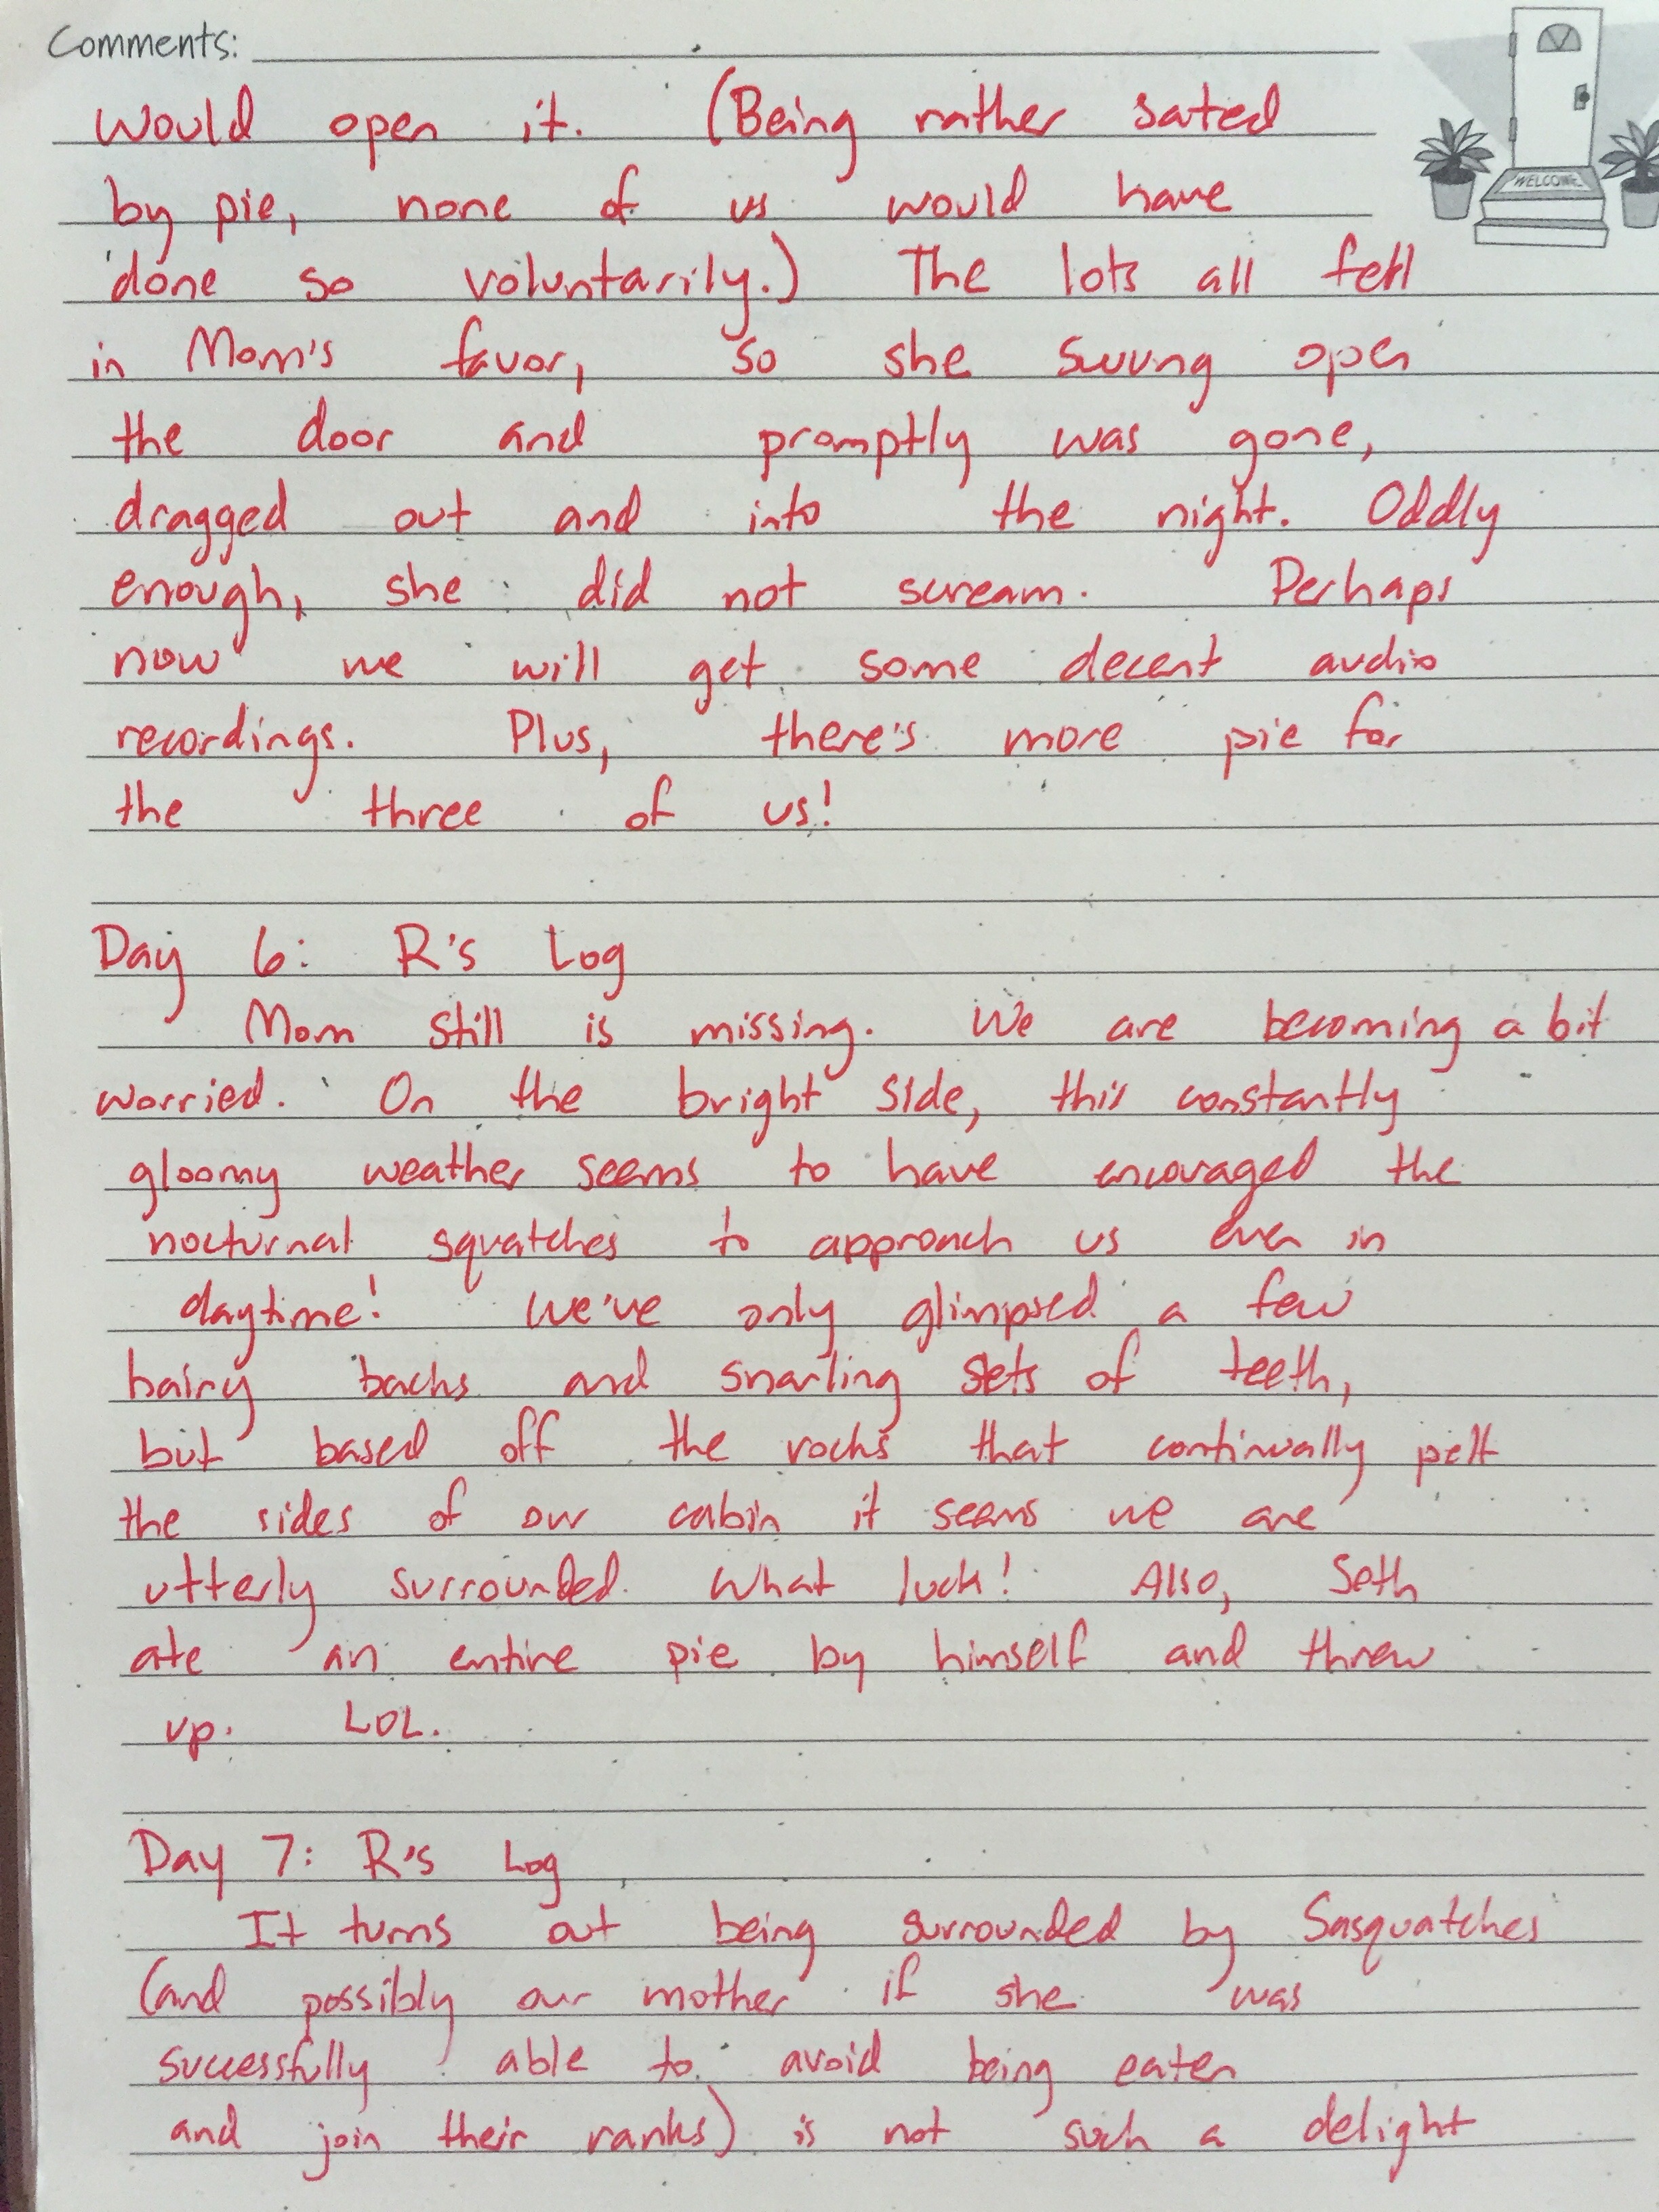 Comments:
WELCOME
would open it. (Being rather sated
by pie, none of us would have
done so voluntarily.) The lots all fell
in Mom's favor, so she swung open
the door and promptly was gone,
dragged out and into the night. Oddly
enough, she did not scream. Perhaps
now we will get some decent audio
recordings. Plus, there's more pie for
the three of us!
Day 6: R's Log
Mom still is missing. We are becoming a bit
worried. On the bright side, this constantly
gloomy weather seems to have encouraged the
nocturnal squatches to approach us even in
daytime! We've only glimpsed a few
hairy backs and snarling sets of teeth,
but based off the rocks that continually pelt
the sides of our cabin it seems we are
utterly surrounded. What luck! Also, Seth
ate an entire pie by himself and threw
up. LOL.
Day 7: R's Log
It turns out being surrounded by Sasquatches
(and possibly our mother if she was
successfully able to avoid being eaten
and join their ranks) is not such a delight